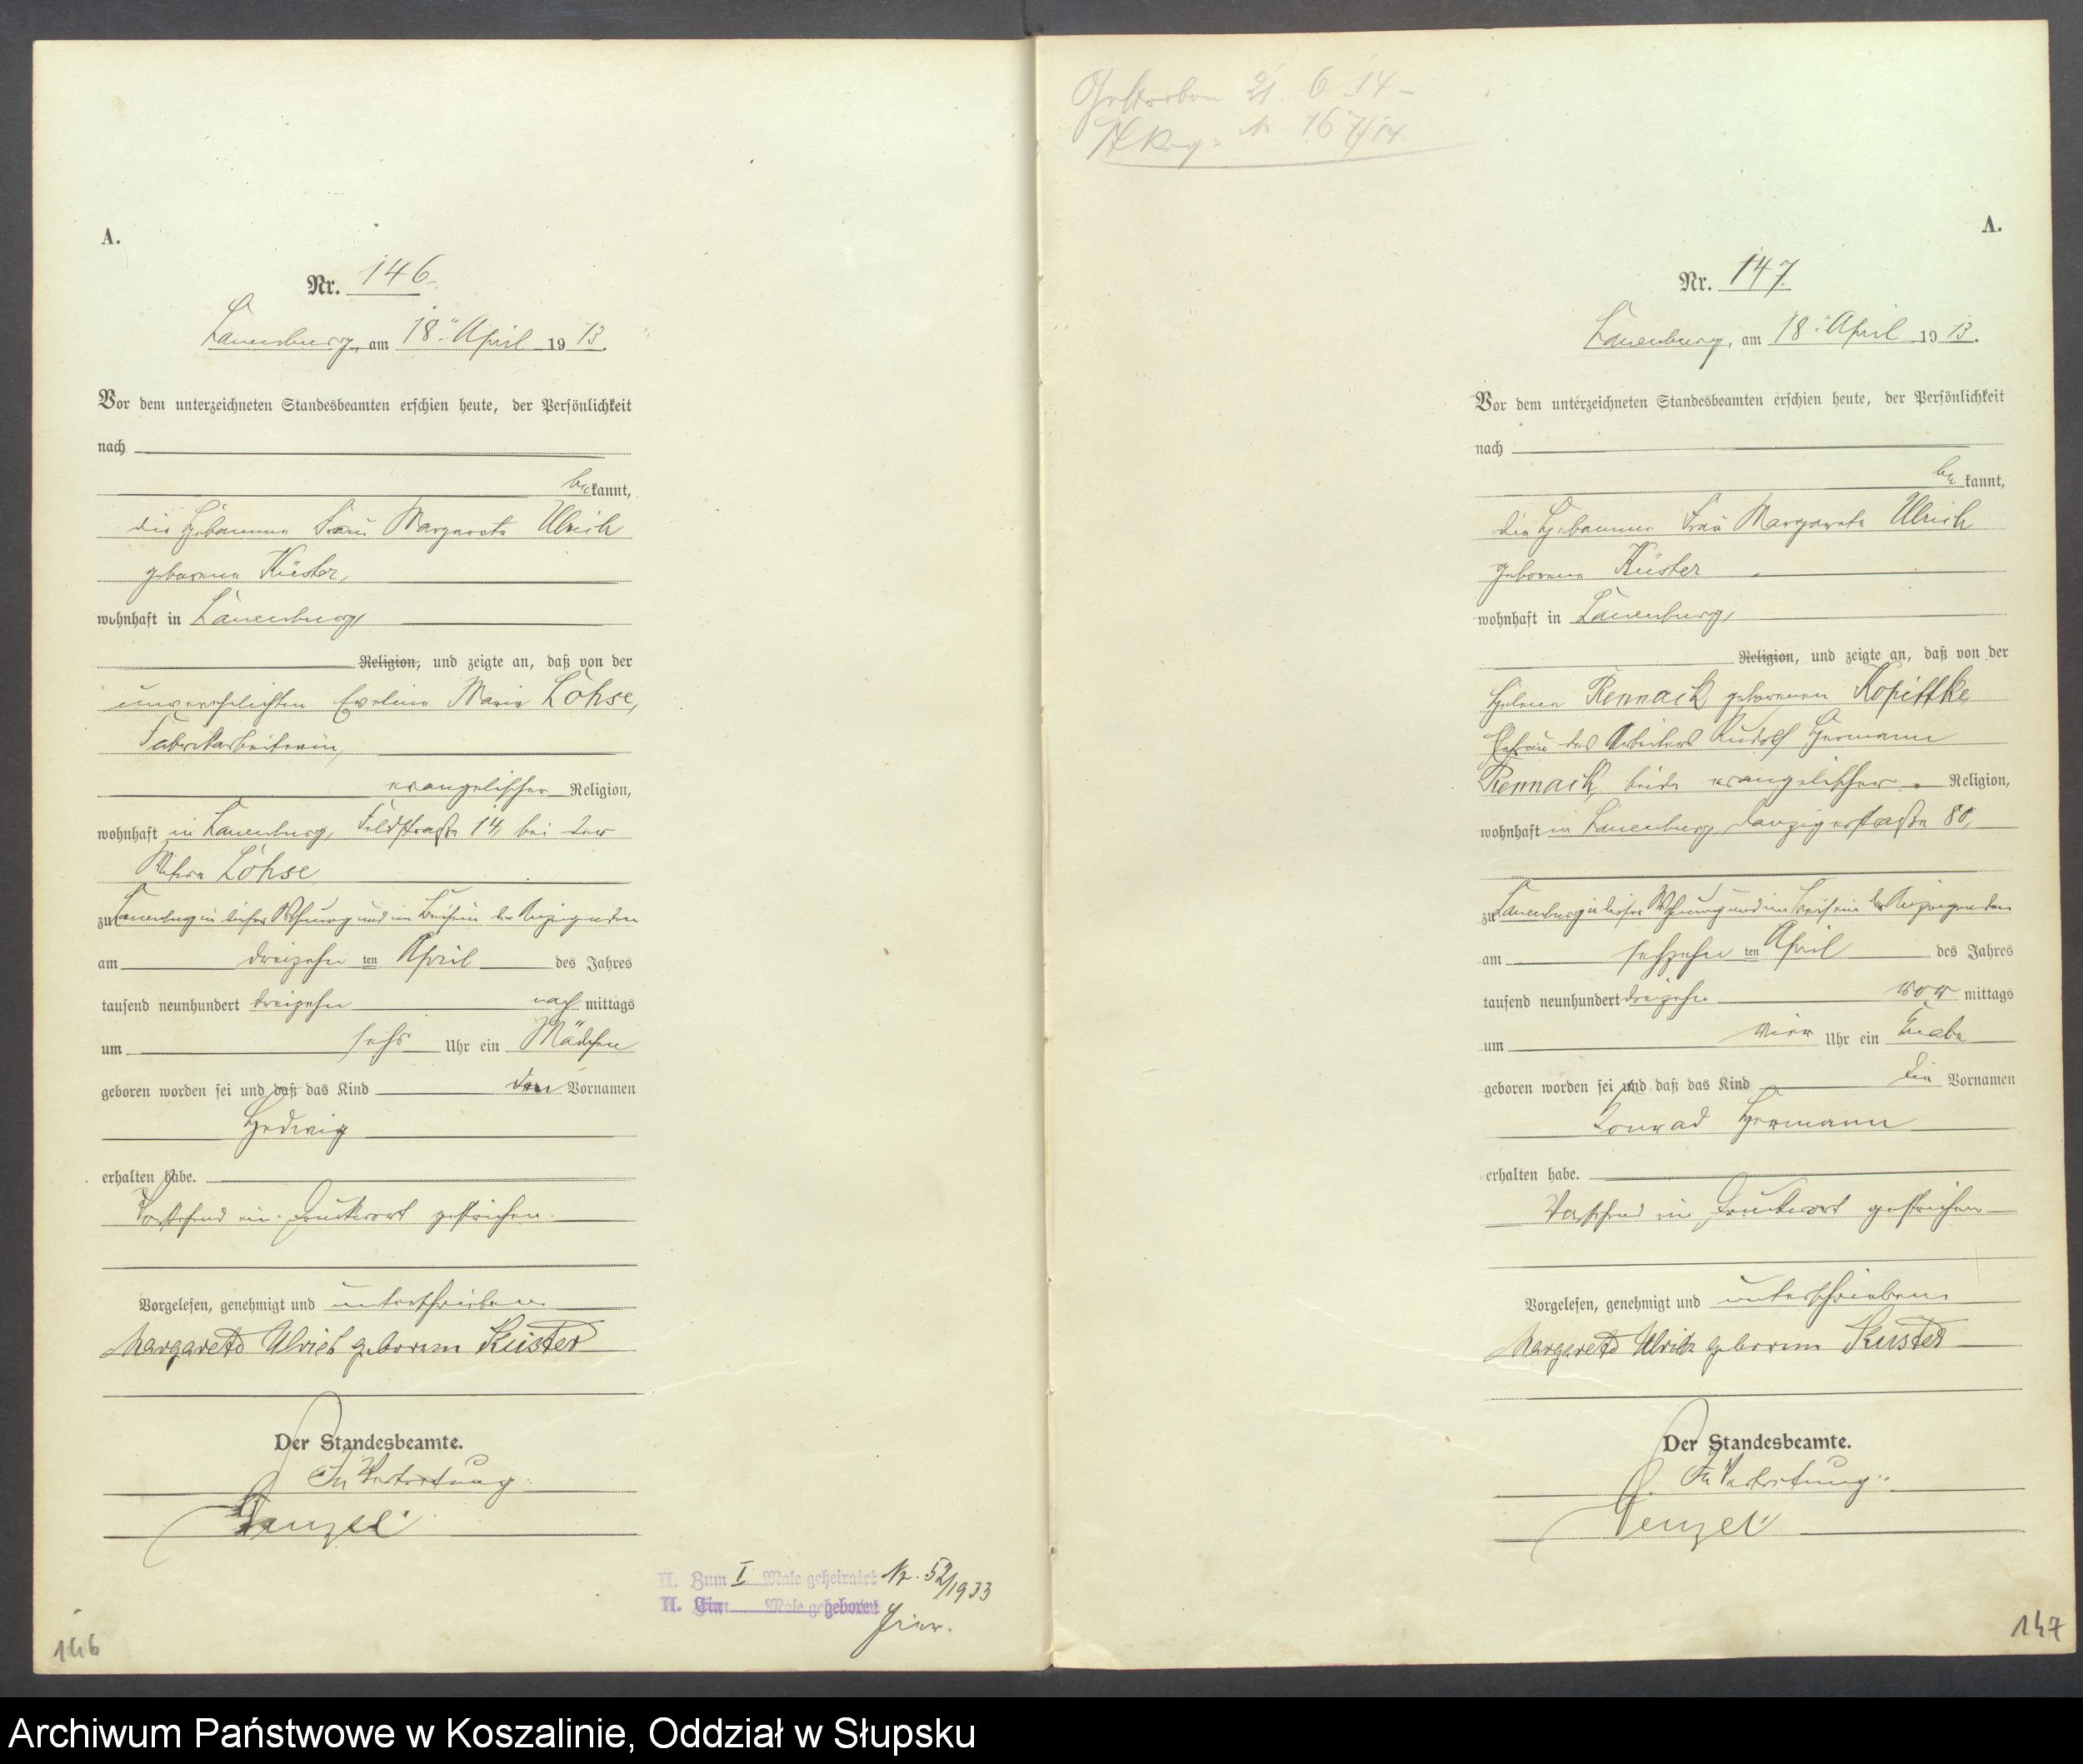 A.
Nr. 146.
Lauenburg, am 18. April 1913.
Vor dem unterzeichneten Standesbeamten erschien heute, der Persönlichkeit
nach
bekannt,
die Hebamme Frau Margarete Ulrich
geborene Küster,
wohnhaft in Lauenburg,
Religion, und zeigte an, daß von der
unverehelichten Eveline Marie Lohse,
Fabrikarbeiterin,
evangelischer Religion,
wohnhaft in Lauenburg, Feldstraße 14, bei der
Witwe Lohse
zu Lauenburg in dieser Wohnung und im Beisein der Anzeigenden
am dreizehnten April des Jahres
tausend neunhundert dreizehn nachmittags
um sechs Uhr ein Mädchen
geboren worden sei und daß das Kind den Vornamen
Hedwig
erhalten habe.
Vorstehend ein Druckwort gestrichen.
Vorgelesen, genehmigt und unterschrieben
Margarete Ulrich geborene Küster
Der Standesbeamte.
In Vertretung:
Wenzel
II. Zum I Male geheiratet Nr. 52/1933
II. Ein Male geboren
hier.
146
Gestorben 21. 6 14 –
St. Reg. N 167/14.
A.
Nr. 147.
Lauenburg, am 18. April 1913.
Vor dem unterzeichneten Standesbeamten erschien heute, der Persönlichkeit
nach
bekannt,
die Hebamme Frau Margarete Ulrich
geborene Küster
wohnhaft in Lauenburg,
Religion, und zeigte an, daß von der
Helene Rennack geborenen Kopittke,
Ehefrau des Arbeiters Rudolf Hermann
Rennack, beide evangelischer Religion,
wohnhaft in Lauenburg, Danzigerstraße 80,
zu Lauenburg in dieser Wohnung und im Beisein der Anzeigenden
am sechzehnten April des Jahres
tausend neunhundert dreizehn vormittags
um vier Uhr ein Knabe
geboren worden sei und daß das Kind die Vornamen
Konrad Hermann
erhalten habe.
Vorstehend ein Druckwort gestrichen
Vorgelesen, genehmigt und unterschrieben
Margarete Ulrich geborene Küster
Der Standesbeamte.
In Vertretung:
Wenzel
147
Archiwum Państwowe w Koszalinie, Oddział w Słupsku